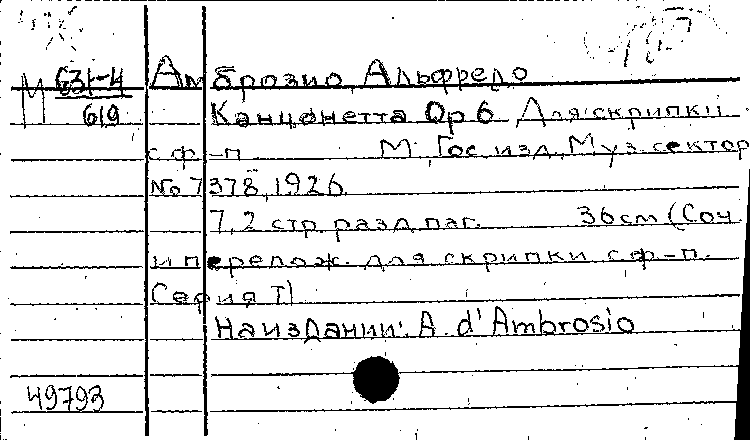 М 631-4
619
Амброзио, Альфредо
Канцонетта Op 6 Для скрипки
с ф-п. М., Гос. изд., Муз. сектор
No 7378, 1926.
7, 2 стр. разд. паг. 36 см (Соч.
и перелож. для скрипки с ф-п.
Серия
На издании: A. d'Ambrosio
49793